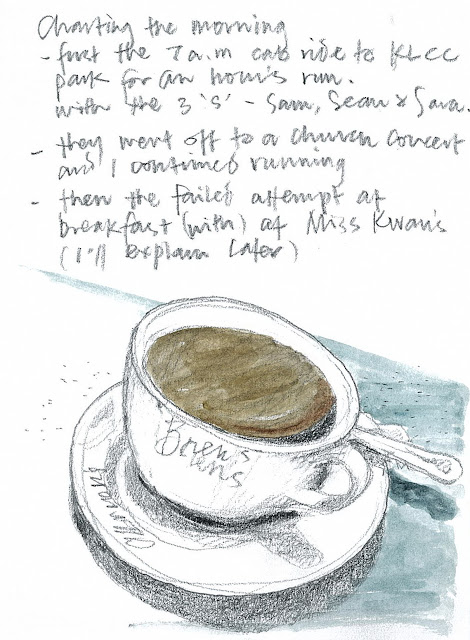 Charting the morning
- first the 7 a.m cab ride to KLCC
park for an hour's run.
with the 3 's' - Sam, Sean & Sara.
- they went off to a church concert
and I continued running
- then the failed attempt at
breakfast (with) at Miss Kwan's
(I'll explain later)